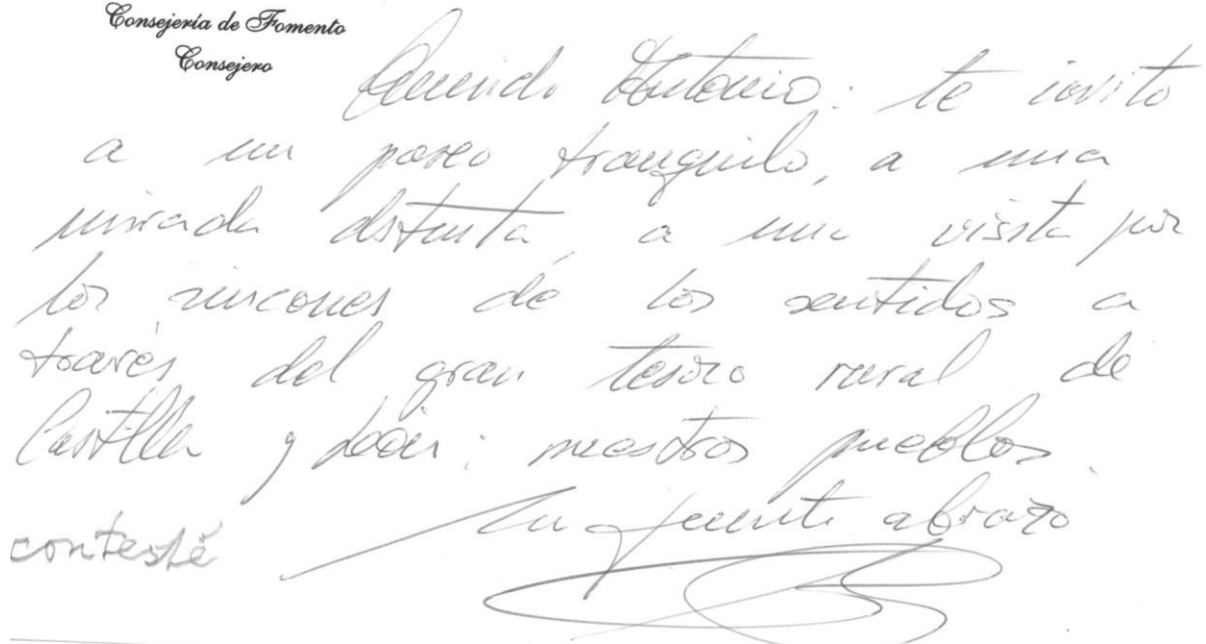 Consejería de Fomento
Consejero
Querido Antonio: te invito
a un paseo tranquilo, a una
mirada distinta, a una visita por
los rincones de los sentidos a
través del gran tesoro rural de
Castilla y León: nuestros pueblos.
Un fuerte abrazo
contesté